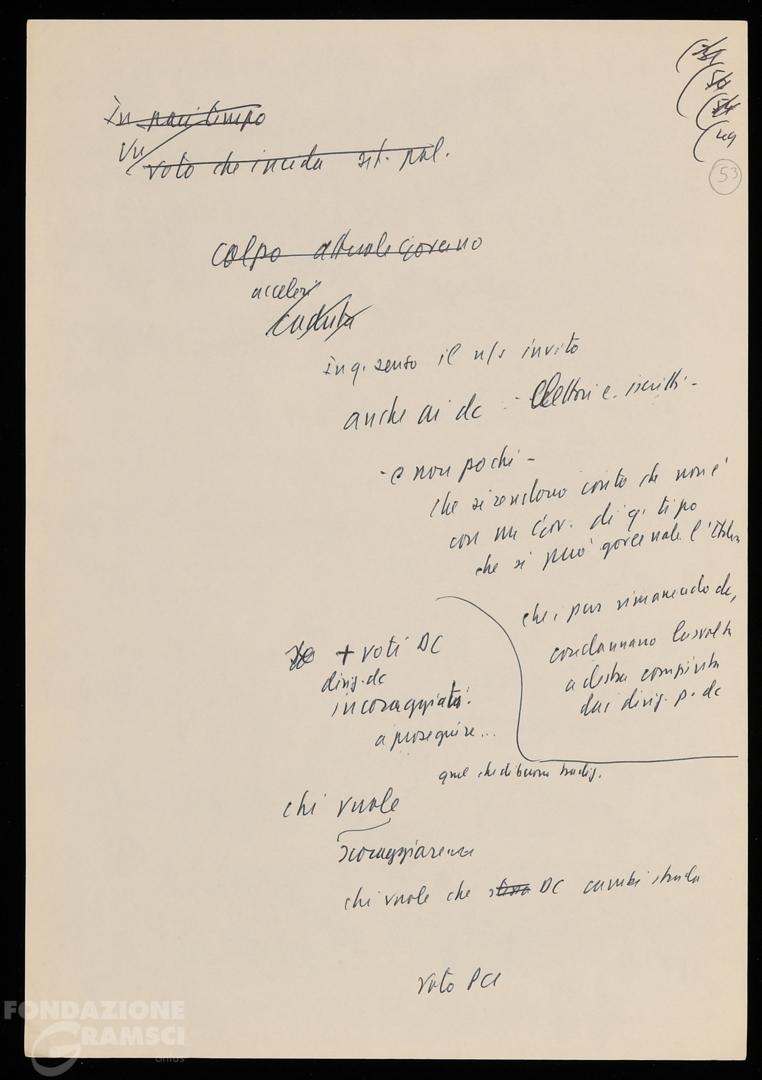 (51
(50
(54
(49
53
In pari tempo
Un
voto che incida sit. pol.
colpo attuale Governo
acceleri
caduta
in q. senso il n/s invito
anche ai dc - Elettori e iscritti -
- e non pochi -
che si rendono conto che non è
con un Gov. di q. tipo
che si può governare l'Italia
che, pur rimanendo dc,
condannano la svolta
a destra compiuta
dai dirig. p. dc
+ voti DC
dirig. dc
incoraggiati
a proseguire...
quel che di buono
chi vuole
scoraggiare
chi vuole che DC cambi strada
voto PCI
FONDAZIONE
GRAMSCI
onlus